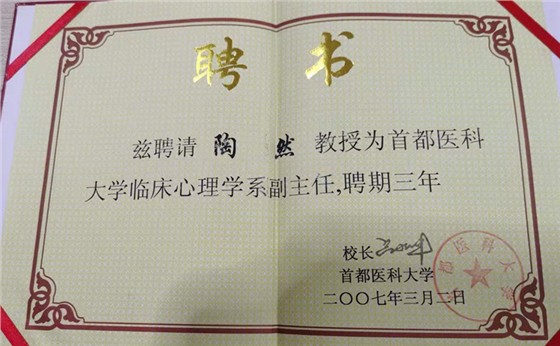 聘书
兹聘请 陶 然 教授为首都医科
大学临床心理学系副主任,聘期三年
校长
首都医科大学
二〇〇七年三月二日
首都医科大学